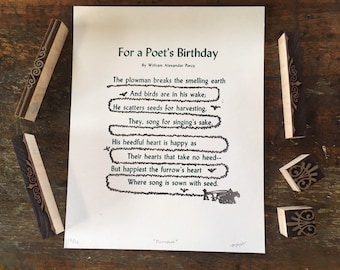 For a Poet's Birthday
By William Alexander Percy
The plowman breaks the smelling earth
And birds are in his wake;
He scatters seeds for harvesting,
They, song for singing's sake.
His heedful heart is happy as
Their hearts that take no heed—
But happiest the furrow's heart
Where song is sown with seed.